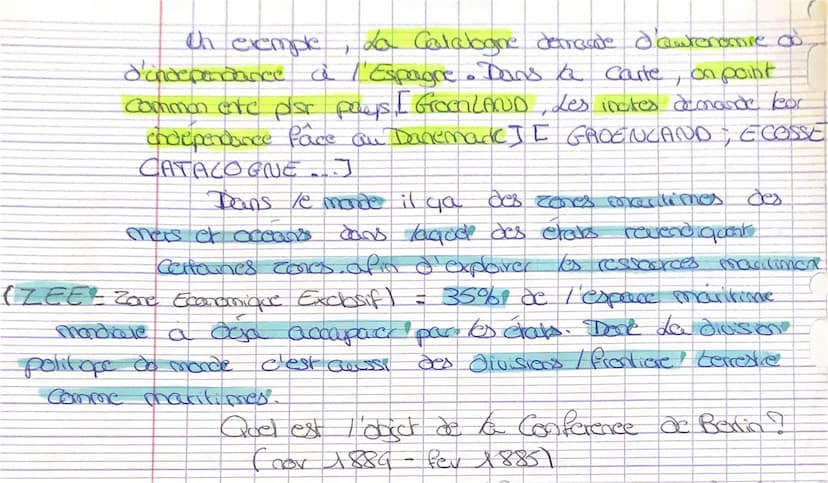 Un exemple, La Catalogne demande d'autonomie où
d'independance à l'Espagne. Dans la carte, on point
commun avec plsr pays [GroenLAND, Les inuites demande leur
indépendance fâce au Danemark] [GROENLAND ; ECOSSE
CATALOGNE ...]
Dans le monde il ya des zones maritimes des
mers et océans dans laquel des états revendiquent
certaines zones afin d'explorer les ressources maritimes
(ZEE = Zone Economique Exclusif) = 35% de l'espace maritime
mondiale a déja accaparer par les états. Donc La division
politiqe du monde c'est aussi des divisions / frontiere terrestre
comme maritimes.
Quel est l'objet de la Conference de Berlin ?
(nov 1884 - fev 1885)